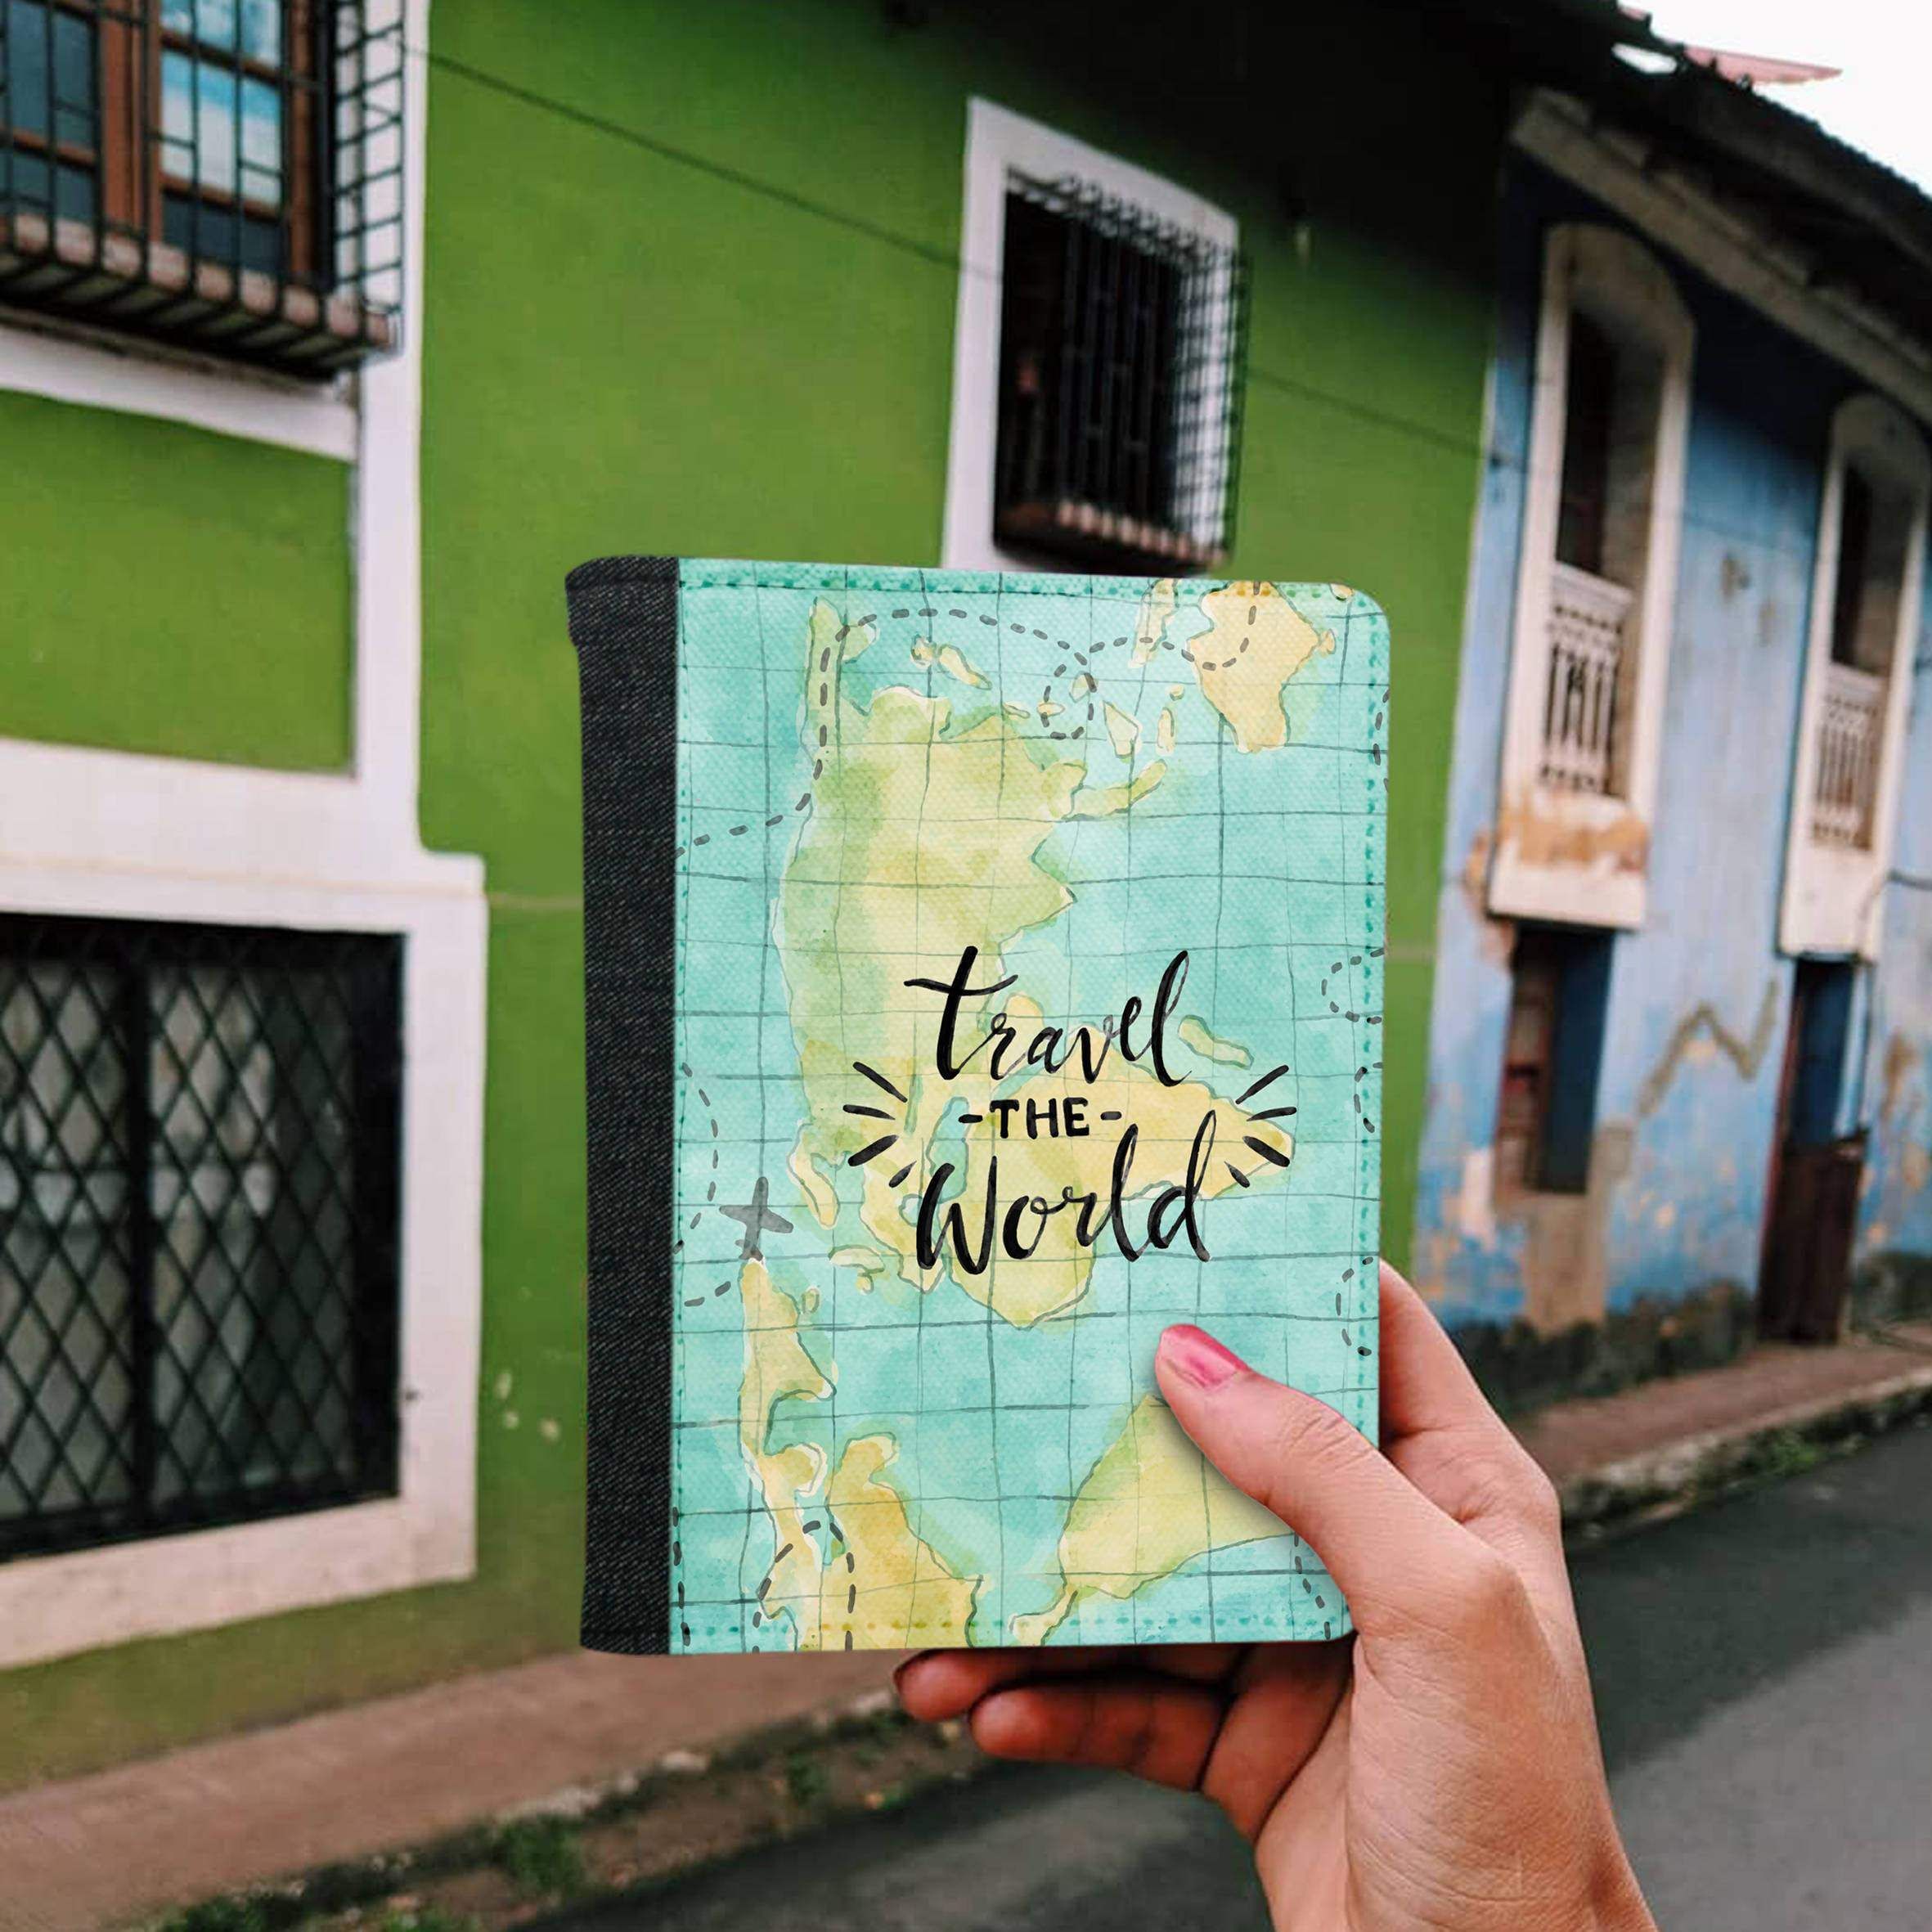 travel
-THE-
World